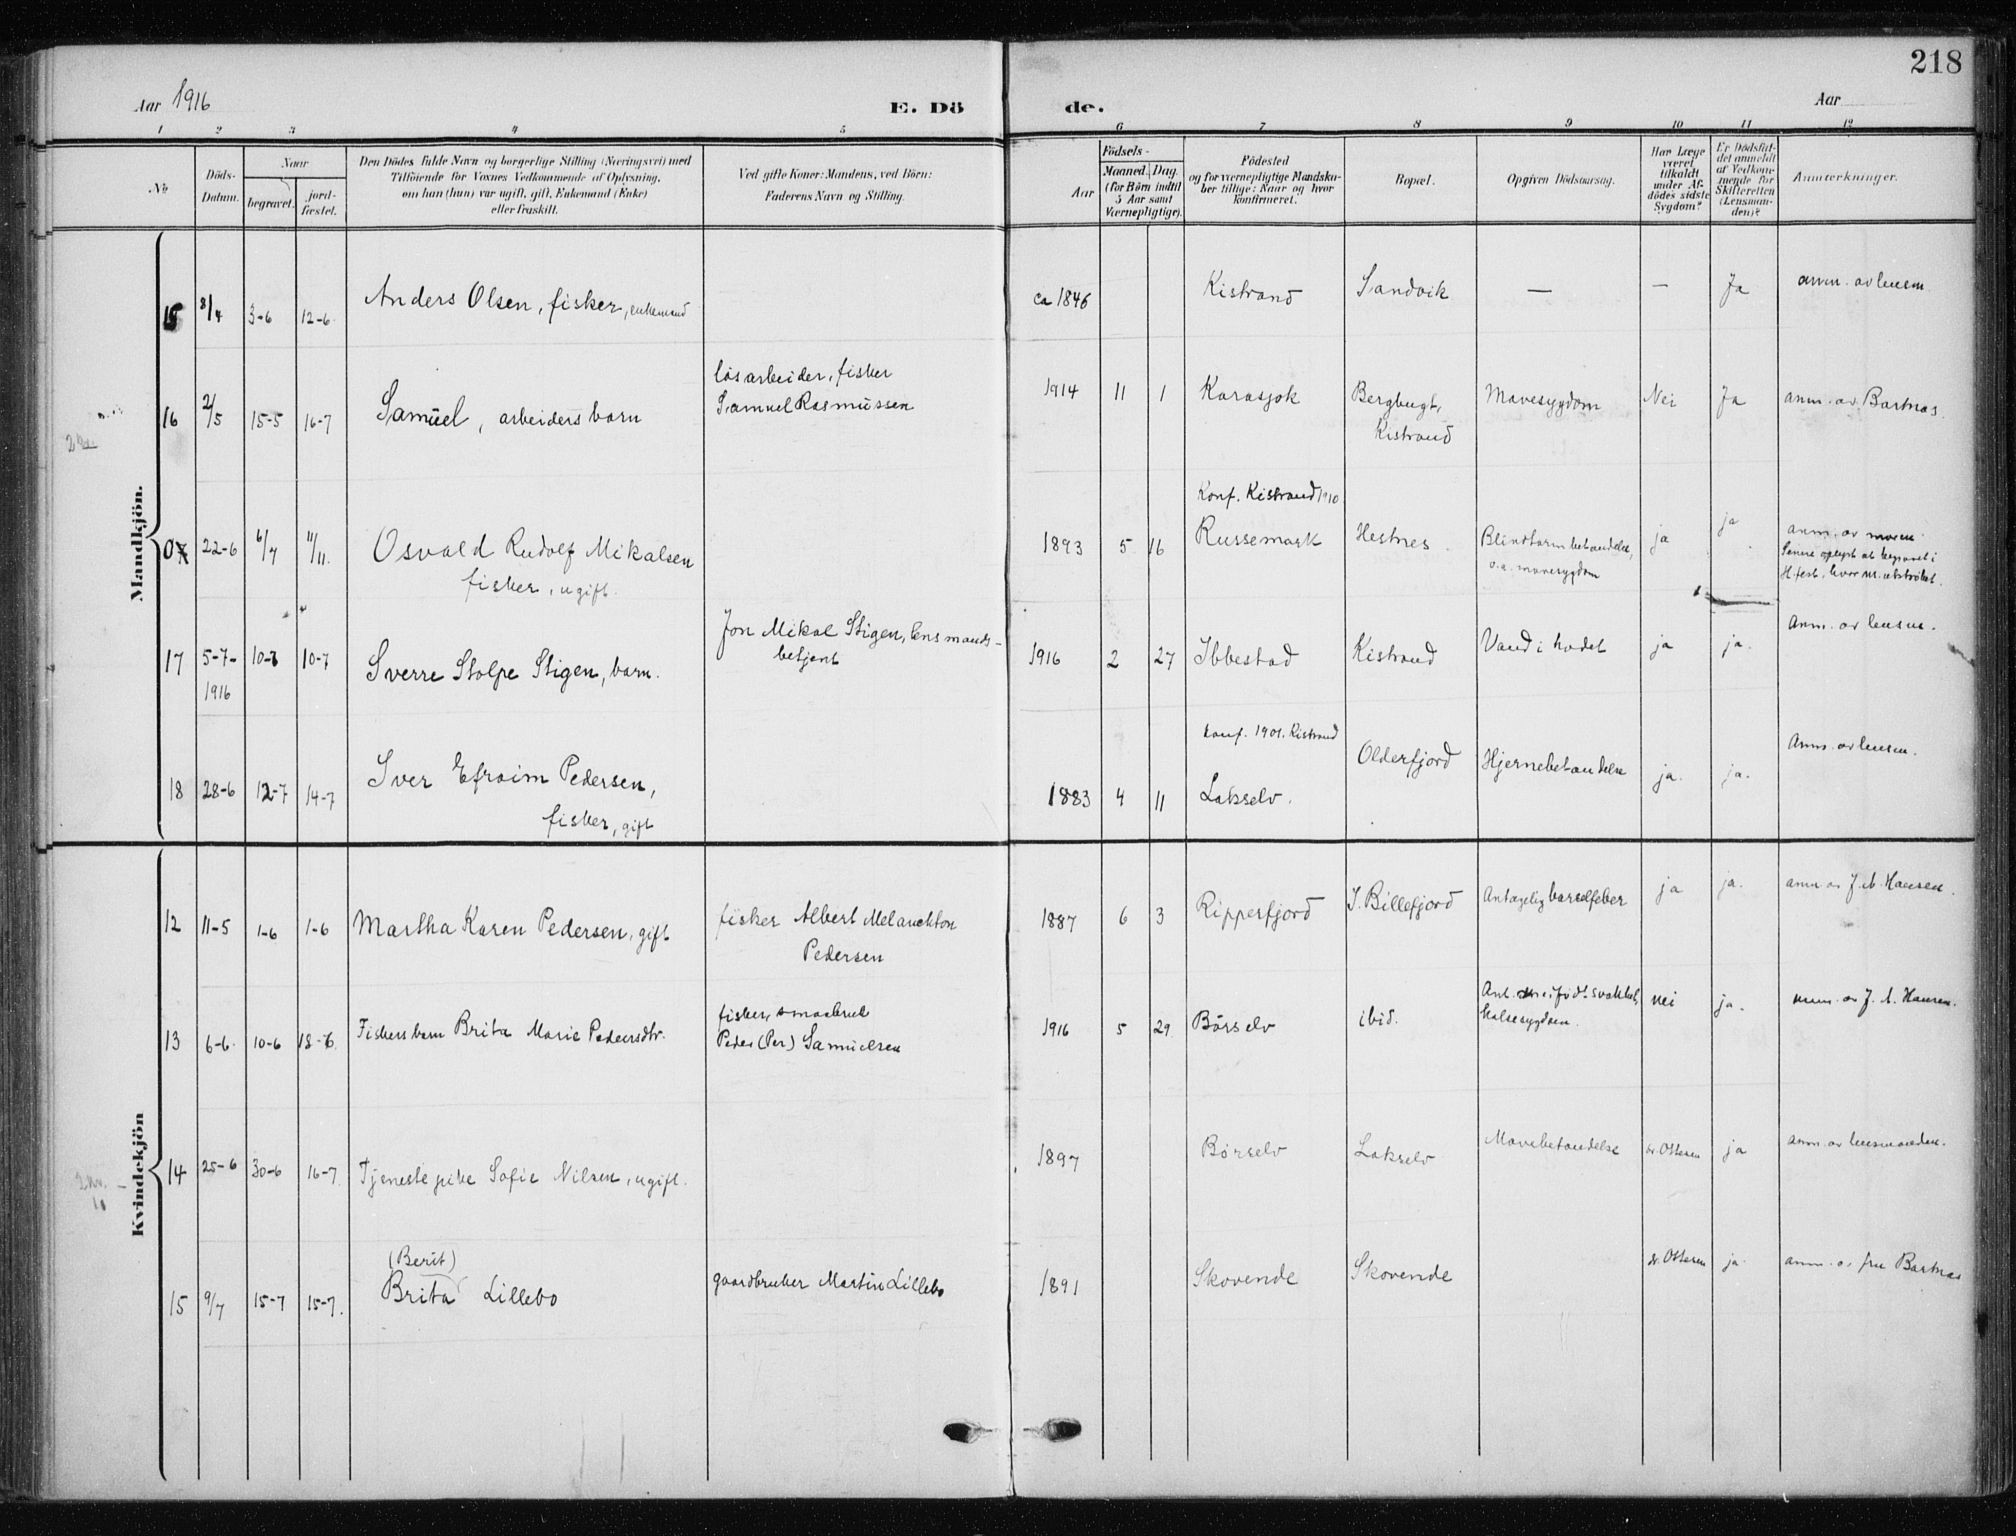 218
Aar 1916
E. Dö
de.
Aar
1 2 3 4 5 6 7 8 9 10 11 12
No
Döds-
Datum.
Naar
begravet.
jord-
fæstet.
Den Dödes fulde Navn og borgerlige Stilling (Næringsvei) med
Tilföiende for Voxnes Vedkommende af Oplysning,
om han (hun) var ugift, gift, Enkemand (Enke)
eller fraskilt.
Ved gifte Koner: Mandens, ved Börn:
Faderens Navn og Stilling.
Födsels-
Aar
Maaned.
Dag.
(for Börn indtil
5 Aar samt
Værnepligtige).
Födested
og for værnepligtige Mandska-
ber tillige: Naar og hvor
konfirmeret.
Bopæl.
Opgiven Dödsaarsag.
Har Læge
været
tilkaldt
under Af-
dödes sidste
Sygdom?
Er Dödsfal-
det anmeldt
af Vedkom-
mende for
Skifteretten
(Lensman-
den)?
Anmærkninger.
Mandkjön.
15 8/4 3-6 12-6 Anders Olsen, fisker, enkemand ca 1846 Kistrand Sandvik — — Ja anm. av lensm
16 2/5 15-5 16-7 Samuel, arbeiders barn
løsarbeider, fisker
Samuel Rasmussen
1914 11 1 Karasjok Bergbugt,
Kistrand
Mavesygdom Nei Ja anm. av Bartnas.
22-6 6/7 11/11. Osvald Rudolf Mikalsen
fisker, ugift.
1893 5 16
Konf. Kistrand 1910
Russemark Hestnes. Blindtarmbetændelse,
o.a. mavesygdom
ja ja anm. av moren
Senere oplyst at begravet i
H.fest, hvor nr. utstrøket.
17 5-7-
1916
10-7 10-7 Sverre Stolpe Stigen, barn.
Jon Mikal Stigen, lensmands-
betjent
1916 2 27 Ibbestad Kistrand Vand i hodet ja ja. Anm. av lensm.
18 28-6 12-7 14-7 Iver Efraim Pedersen,
fisker, gift
1883 4 11
konf. 1901. Kistrand
Lakselv. Olderfjord Hjernebetændelse ja. ja. Anm. av lensm.
Kvindekjön
12 11-5 1-6 1-6 Martha Karen Pedersen, gift
fisker Albert Melanckton
Pedersen
1887 6 3 Ripperfjord I. Billefjord Antagelig barselfeber ja ja. anm av J. A. Hansen.
13 6-6. 10-6 18-6 Fiskers barn Brita Marie Pedersdtr.
fisker, smaabruk
Peder (Per) Samuelsen
1916 5 29 Børselv ibid.
Ant. svakhet,
halsesygdom.
nei ja. anm. av J. A. Hansen.
14 25-6 30-6 16-7 Tjenestepike Sofie Nilsen, ugift. 1897 Børselv Lakselv Mavebetændelse dr. Ottesen ja anm. av lensmanden.
15 9/7 15-7 15-7.
(Berit)
Brita Lillebo gaardbruker Martin Lillebo 1891 Skovende Skovende dr. Ottesen ja. anm. av fru Bartnas